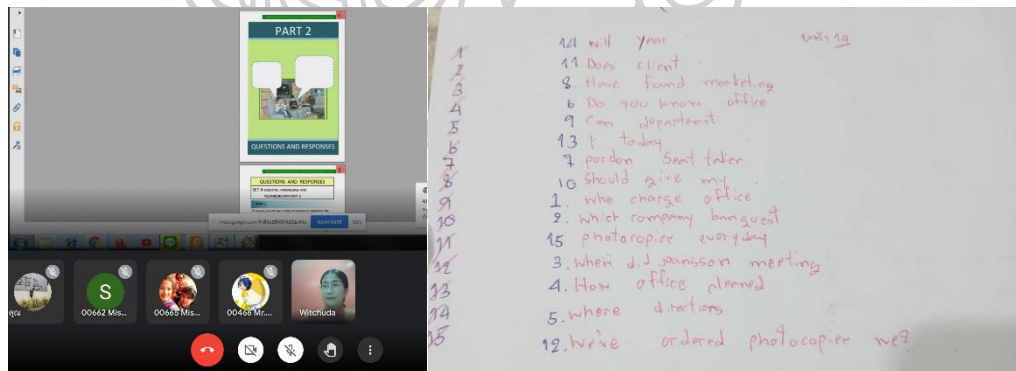 PART 2
QUESTIONS AND RESPONSES
QUESTIONS AND RESPONSES
S
00662 Mis...
00665 Mis...
00466 Mr....
Witchuda
1
2
3
4
5
6
7
8
9
10
11
12
13
14
15
14 will year
11 Does client
8. Have found marketing
6 Do you know office
9 Can department
13 I today
7 pardon Seat taken
10 Should give my
1. who charge office
2. which company banquest
15 photocopier everyday
3. when did meeting
4. How office planned
5. where directions
12. We've ordered photocopier we?